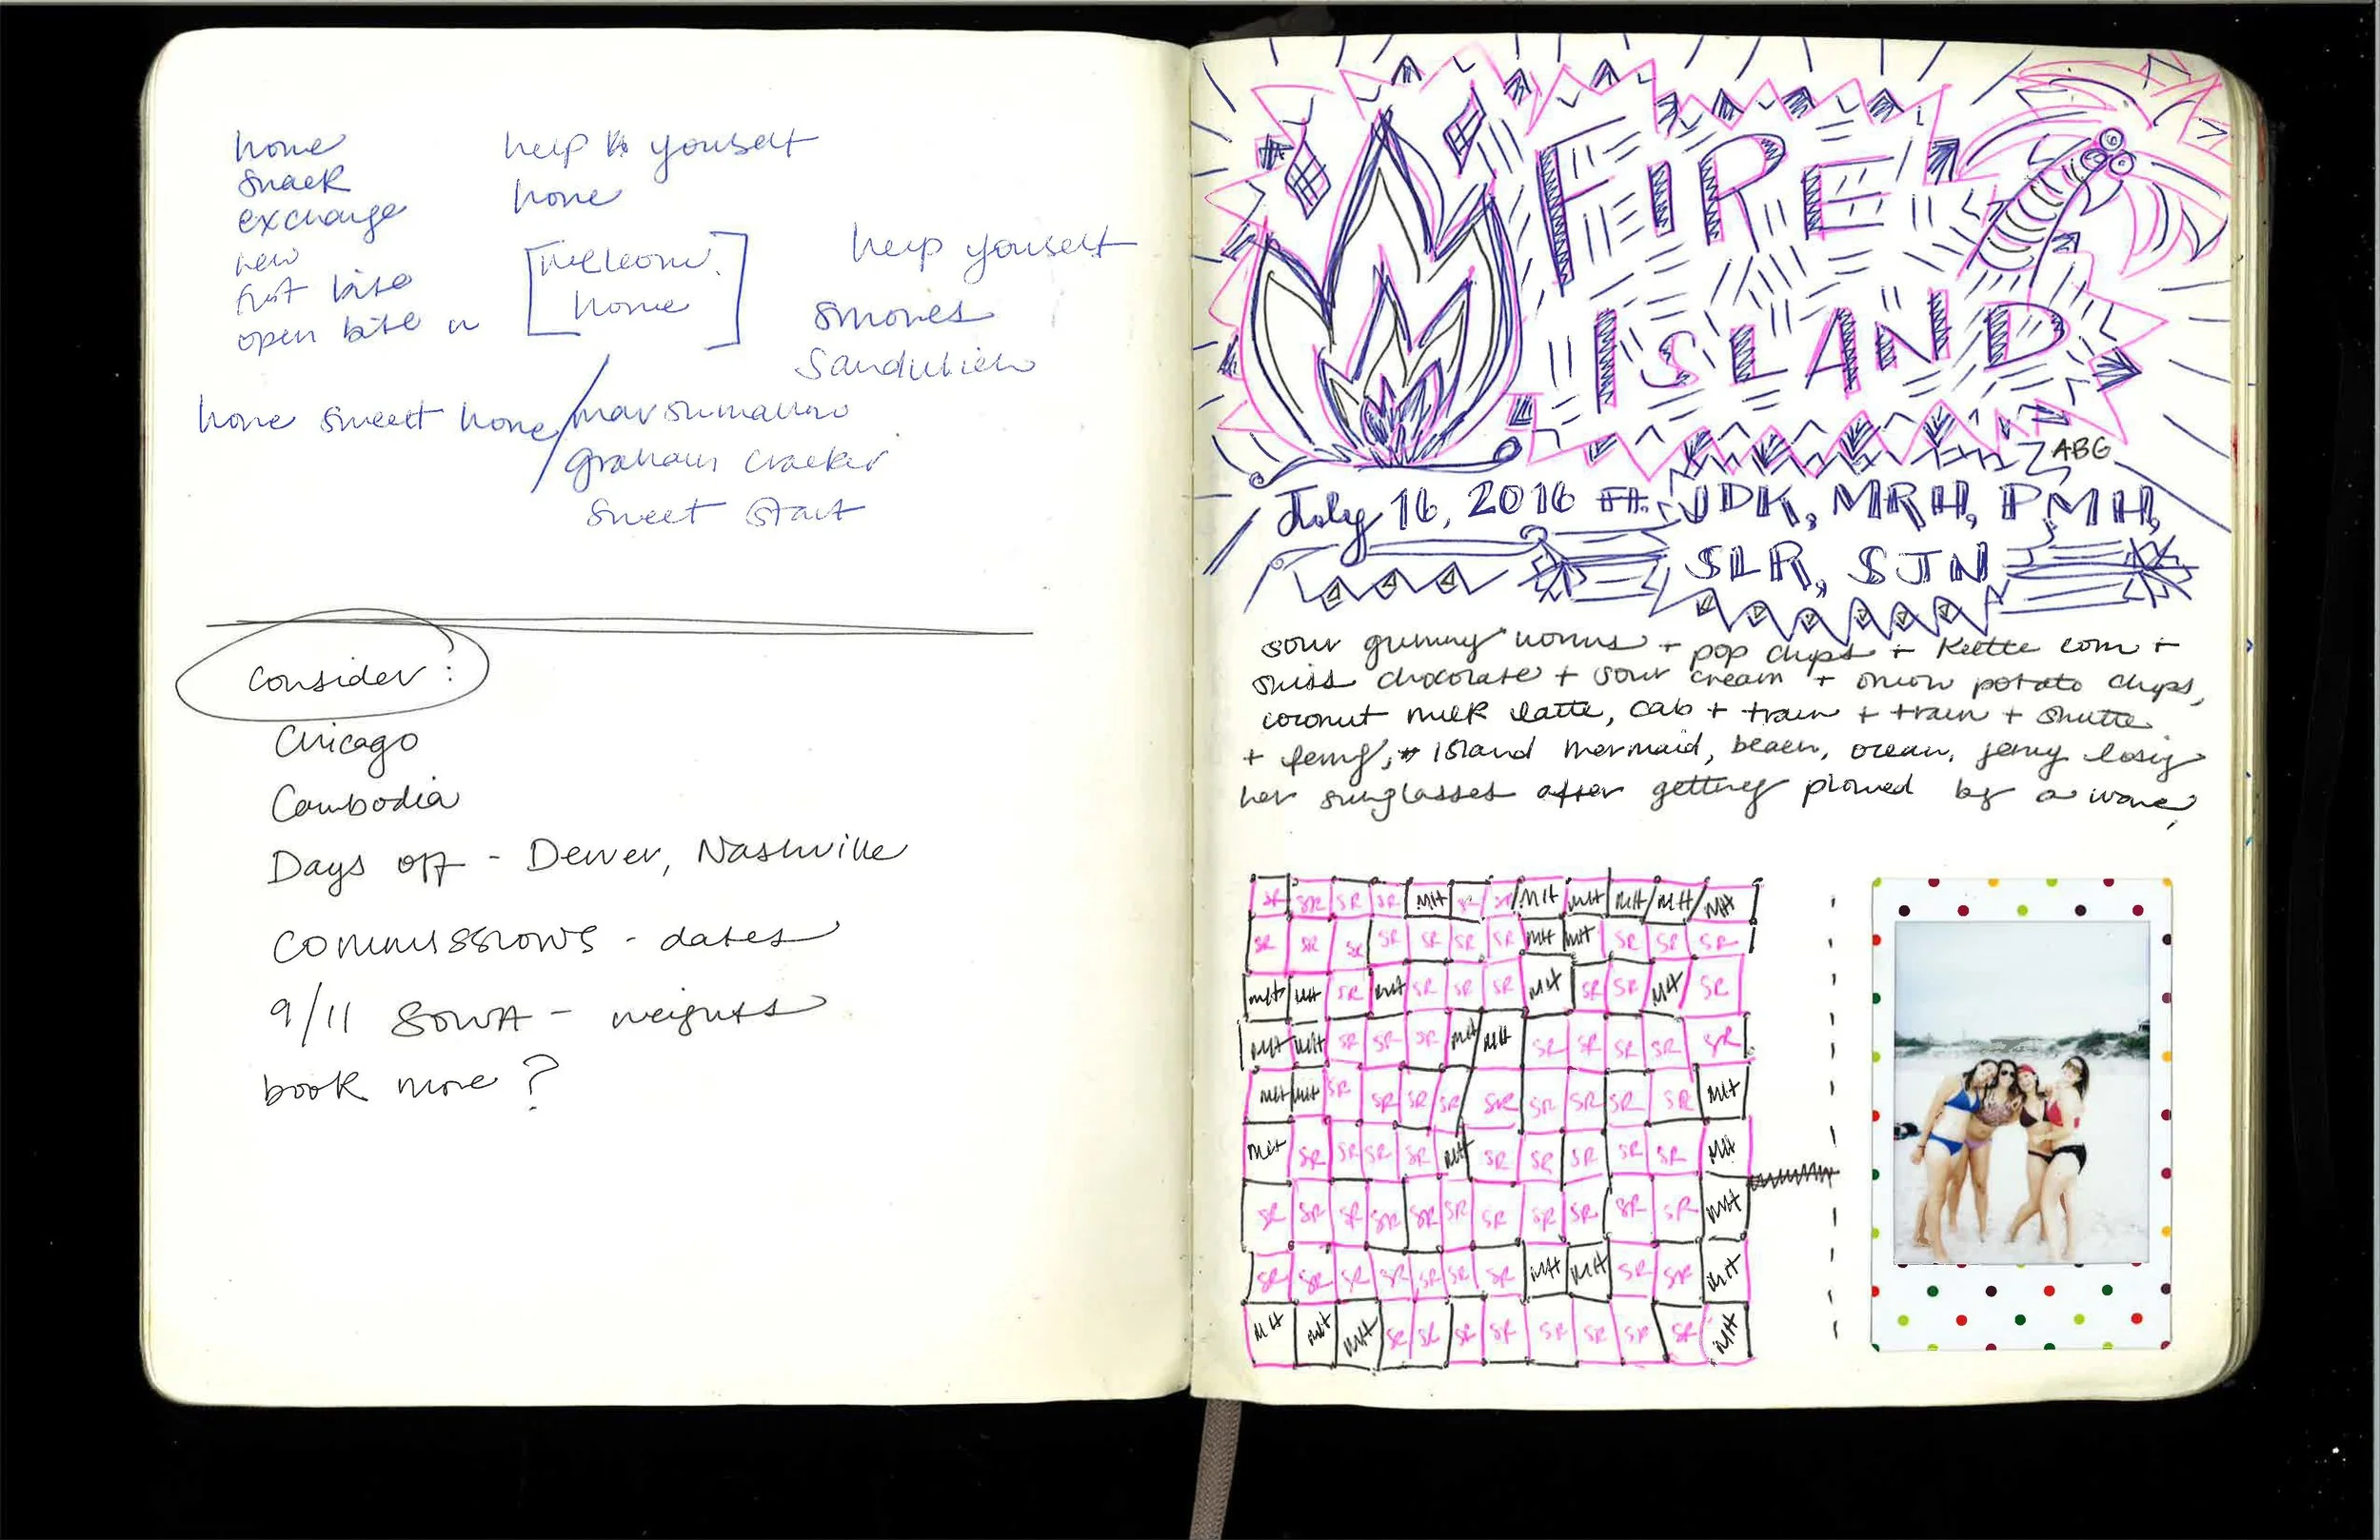 home
snack
exchange
new
first bite
open bite
help to yourself
home
[Welcome
home]
help yourself
smores
sandwich
home sweet home / marshmallow
graham cracker
sweet start
consider:
Chicago
Cambodia
Days off - Denver, Nashville
commissions - dates
9/11 SOWA - weights
book more?
FIRE
ISLAND
ABG
July 16, 2016 ft. JDK, MRH, PMH,
SLR, SJN
sour gummy worms + pop chips + kettle corn +
swiss chocolate + sour cream + onion potato chips,
coconut milk latte, cab + train + train + shuttle
+ ferry, island mermaid, beach, ocean, jenny losing
her sunglasses after getting plowed by a wave,
SR SR SR SR MH SR SR MH MH MH MH MH
SR SR SR SR SR SR SR MH MH SR SR SR
MH MH SR MH SR SR SR MH SR SR MH SR
MH MH SR SR SR MH MH SR SR SR SR SR
MH MH SR SR SR SR SR SR SR SR SR MH
MH SR SR SR SR MH SR SR SR SR SR MH
SR SR SR SR SR SR SR SR SR SR SR MH
SR SR SR SR SR SR SR MH MH SR SR MH
MH MH MH SR SR SR SR SR SR SR SR MH